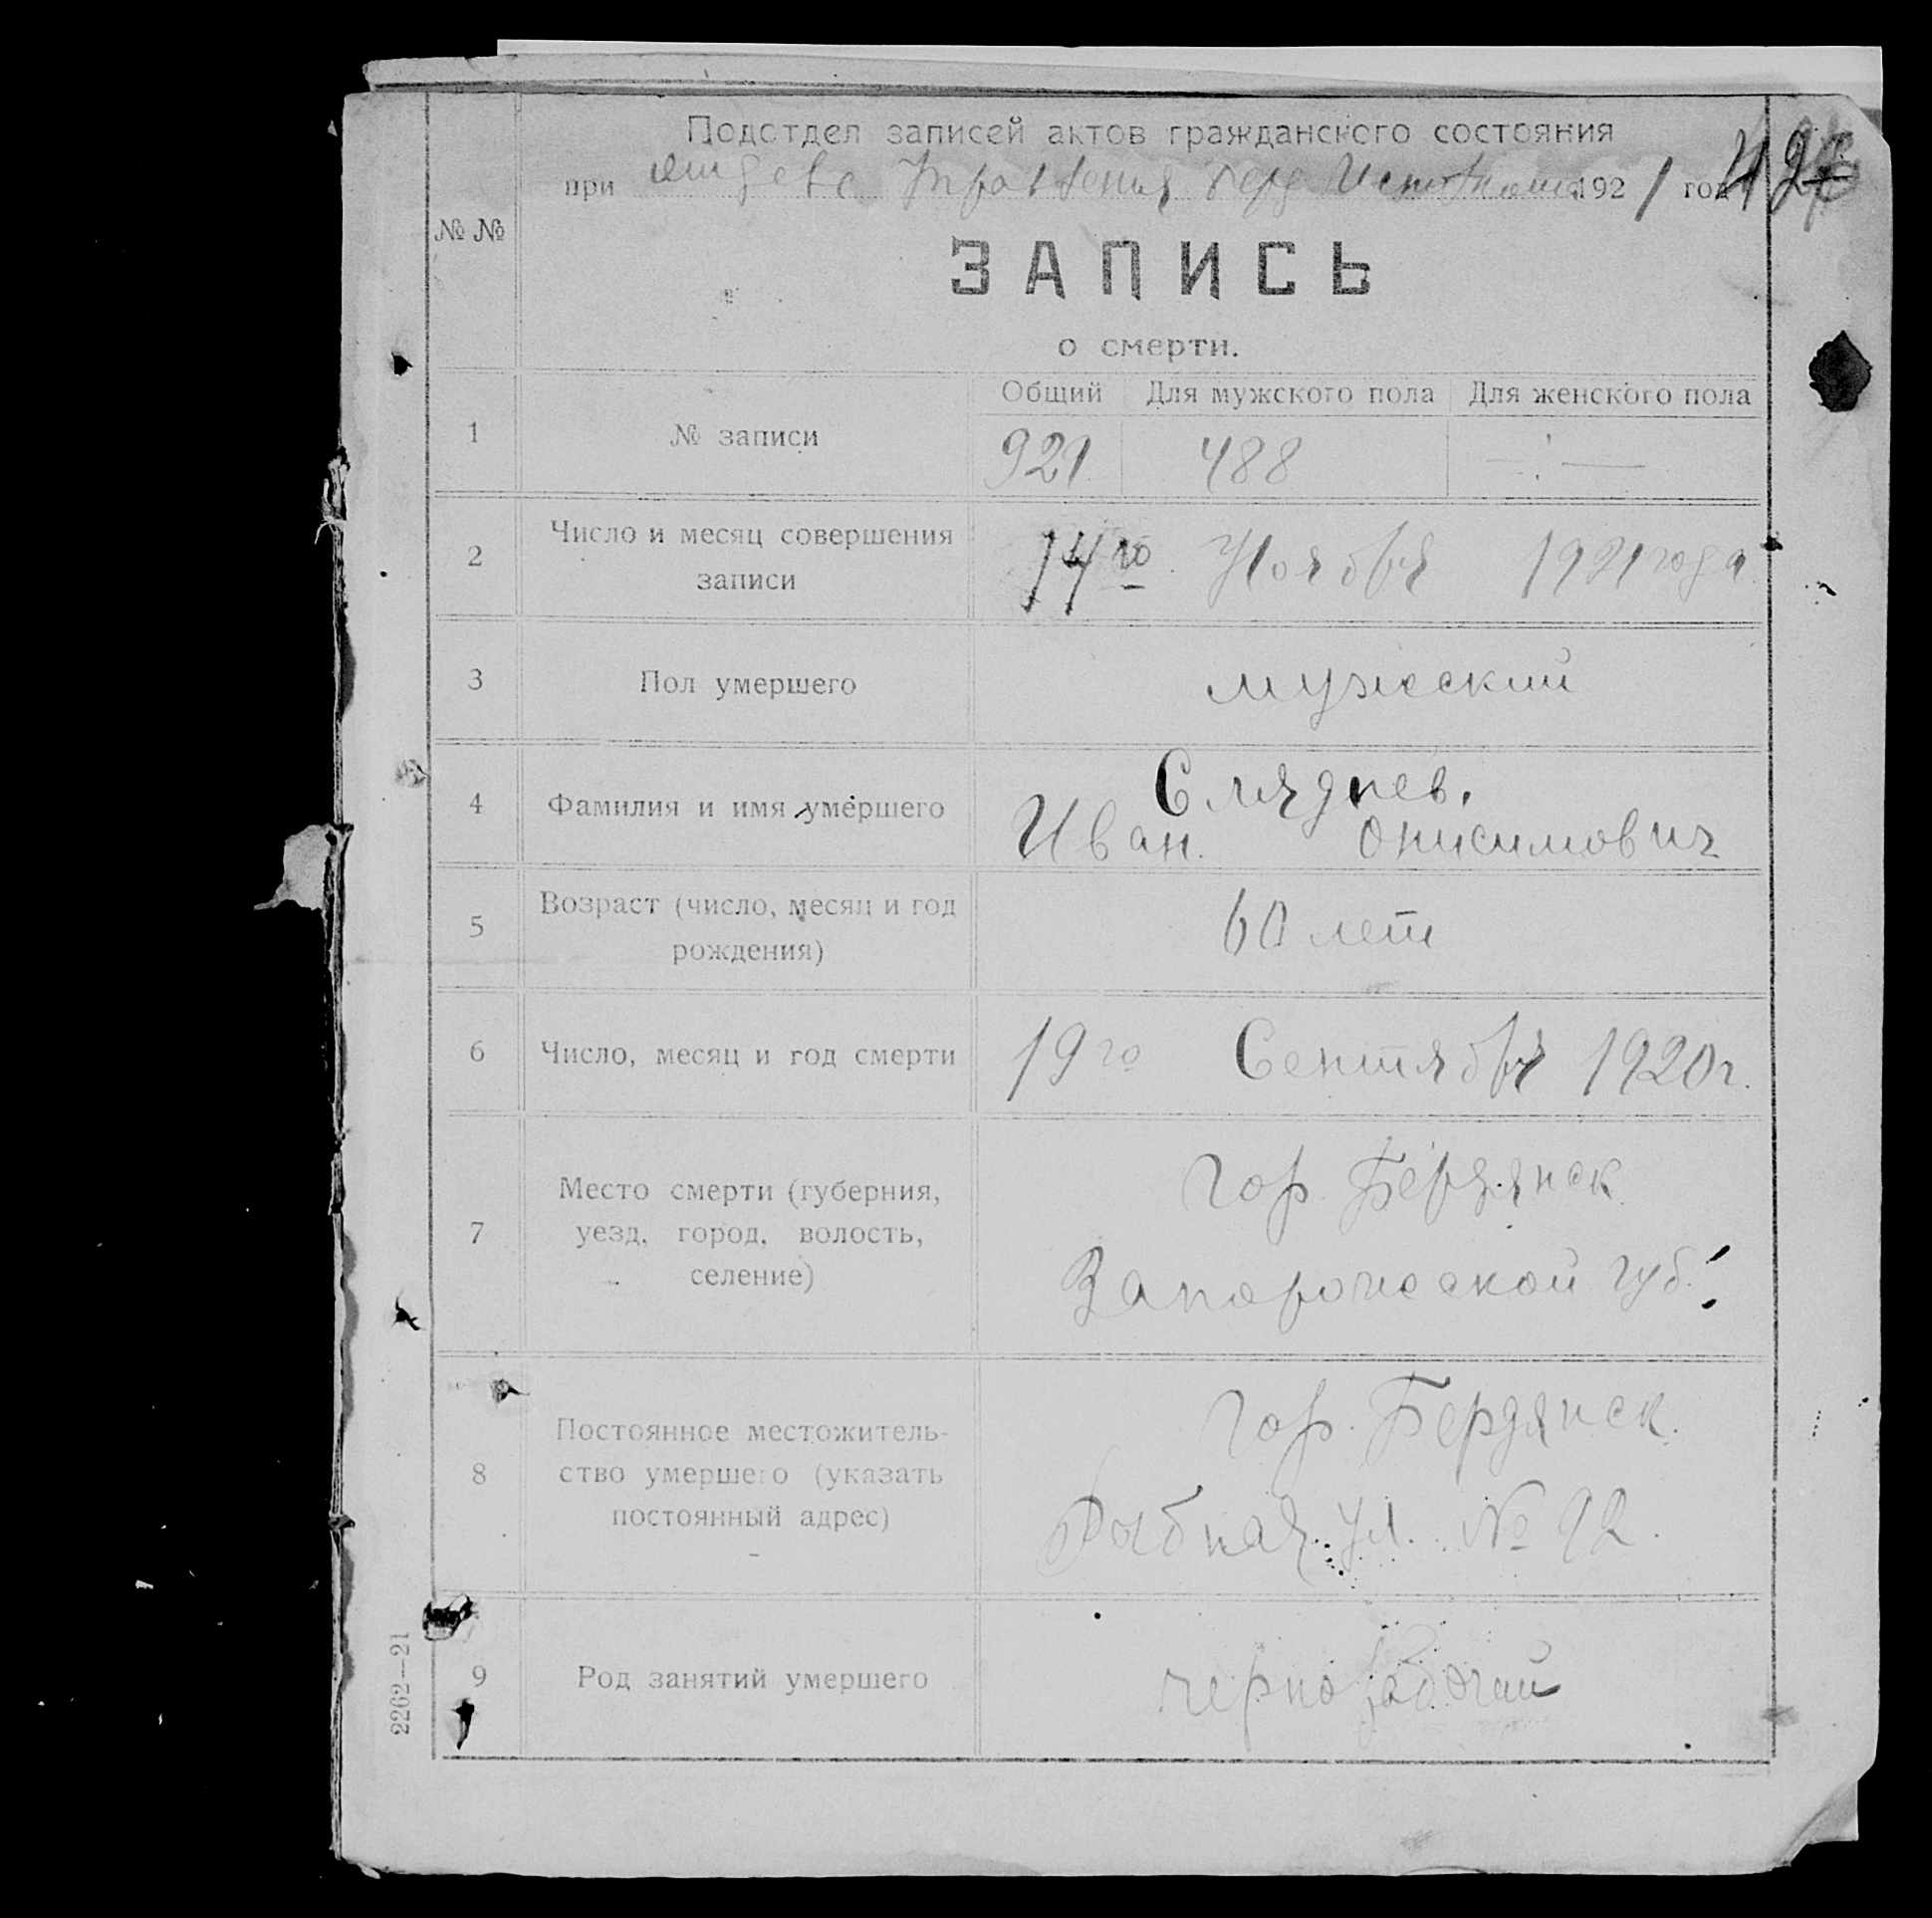 Подотдел записей актов гражданского состояния
при отделе Управления Берд Исполкома 1921 год
№ №
ЗАПИСЬ
о смерти.
Общий Для мужского пола Для женского пола
1 № записи 921 488 —
2 Число и месяц совершения записи 14го Ноября 1921 года
3 Пол умершего мужеский
4 Фамилия и имя умершего Сляднев.
Иван Онисимович
5 Возраст (число, месяц и год
рождения) 60 лет
6 Число, месяц и год смерти 19го Сентября 1920 г.
7 Место смерти (губерния,
уезд, город, волость,
селение)
гор. Бердянск
Запорожской губ.
8 Постоянное местожитель-
ство умершего (указать
постоянный адрес)
гор. Бердянск.
Рыбная ул. № 92.
9 Род занятий умершего чернорабочий
2262—21